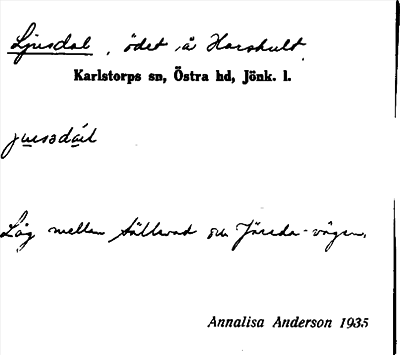 Ljusdal, ödet å Harshult
Karlstorps sn, Östra hd, Jönk. l.
Låg mellan Sällevad och Järeda-vägen.
Annalisa Anderson 1935